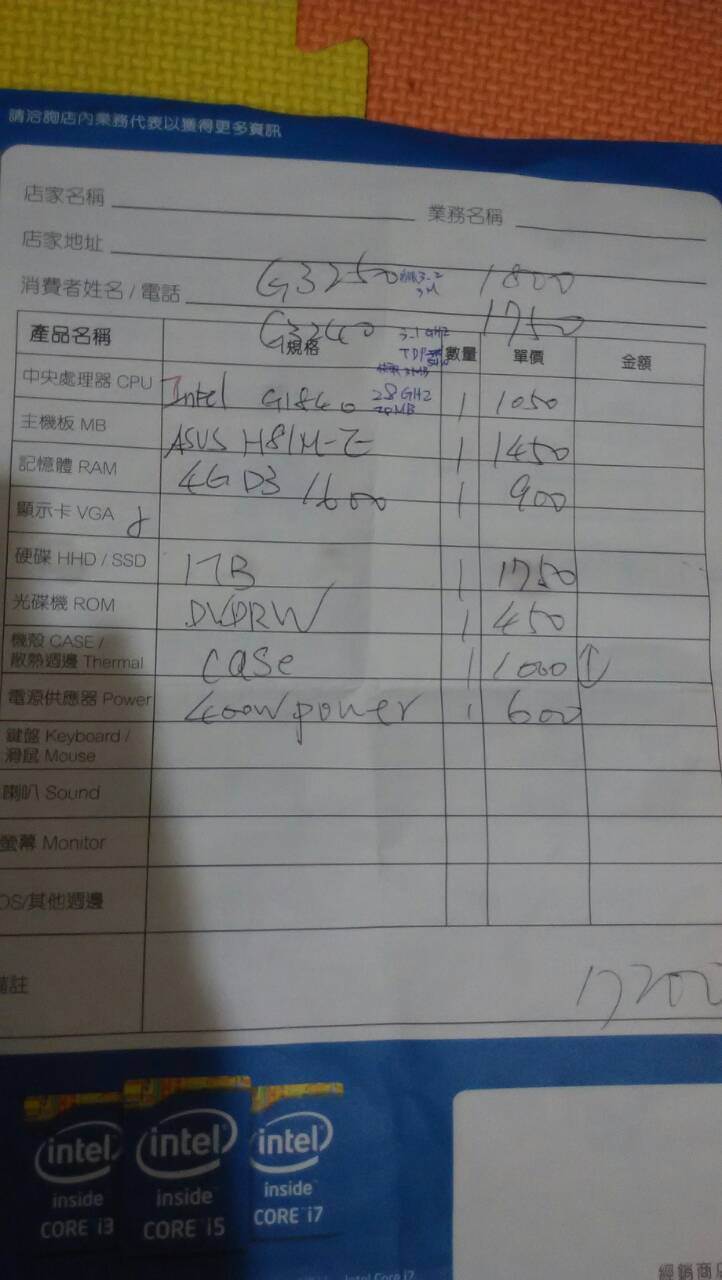 請洽詢店內業務代表以獲得更多資訊
店家名稱 業務名稱
店家地址
消費者姓名 / 電話 G3250 3.2 3M 1800
G3240 3.1GHZ TDP 1750
產品名稱 規格 數量 單價 金額
中央處理器 CPU Intel G1840 2.8GHZ 1 1050
主機板 MB ASUS H81M-E 1 1450
記憶體 RAM 4G D3 1600 1 900
顯示卡 VGA
硬碟 HHD / SSD 1TB 1 1750
光碟機 ROM DVDRW 1 450
機殼 CASE / 散熱週邊 Thermal case 1 1000
電源供應器 Power 400W power 1 600
鍵盤 Keyboard / 滑鼠 Mouse
喇叭 Sound
螢幕 Monitor
OS/其他週邊
備註 7200
intel inside CORE i3
intel inside CORE i5
intel inside CORE i7
Intel Core i7
經銷商店